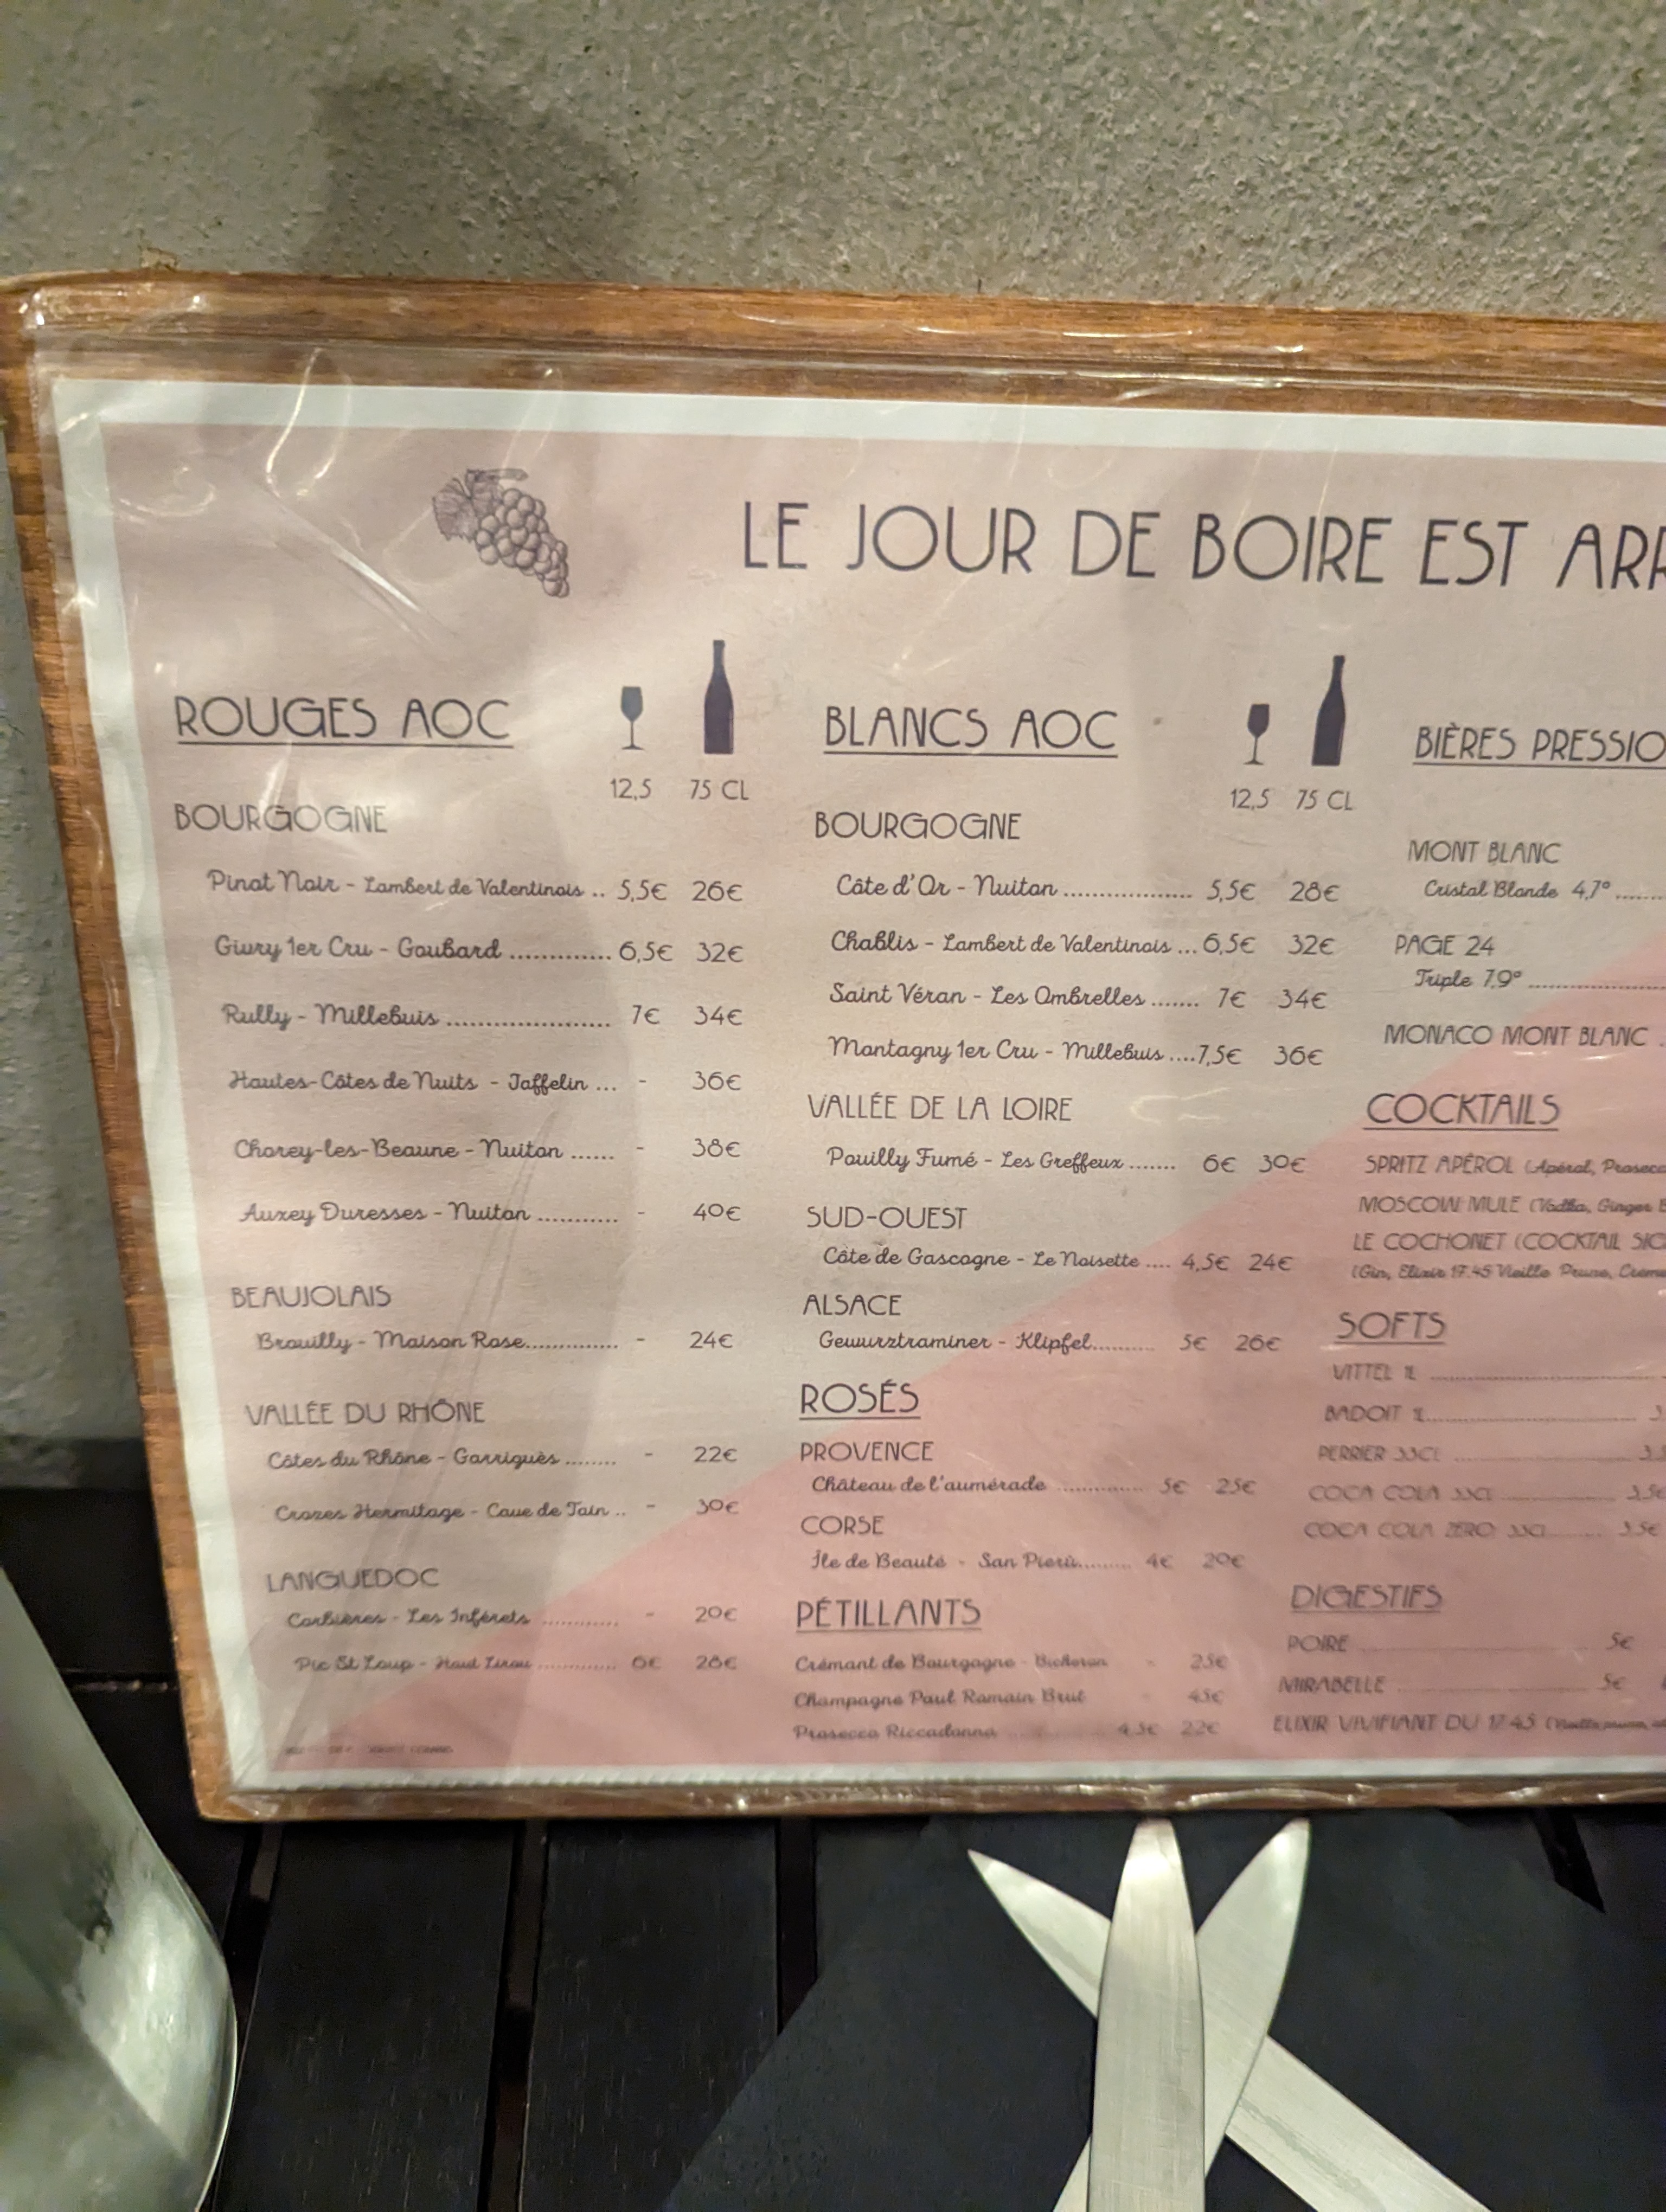 LE JOUR DE BOIRE EST ARR
ROUGES AOC
12,5 75 CL
BOURGOGNE
Pinot Noir - Lambert de Valentinois .. 5,5€ 26€
Givry 1er Cru - Goubard ............. 6,5€ 32€
Rully - Millebuis ........................ 7€ 34€
Hautes-Côtes de Nuits - Jaffelin ... - 36€
Chorey-les-Beaune - Nuiton ...... - 38€
Auxey Duresses - Nuiton ........... - 40€
BEAUJOLAIS
Brouilly - Maison Rose.............. - 24€
VALLÉE DU RHÔNE
Côtes du Rhône - Garriguès ........ - 22€
Crozes Hermitage - Cave de Tain .. - 30€
LANGUEDOC
Corbières - Les Inférets ............ - 20€
Pic St Loup - Haut Lirou ............. 6€ 28€
BLANCS AOC
12,5 75 CL
BOURGOGNE
Côte d'Or - Nuiton ...................... 5,5€ 28€
Chablis - Lambert de Valentinois ... 6,5€ 32€
Saint Véran - Les Ombrelles ....... 7€ 34€
Montagny 1er Cru - Millebuis ....7,5€ 36€
VALLÉE DE LA LOIRE
Pouilly Fumé - Les Greffeux ....... 6€ 30€
SUD-OUEST
Côte de Gascogne - Le Noisette .... 4,5€ 24€
ALSACE
Gewurztraminer - Klipfel.......... 5€ 26€
ROSÉS
PROVENCE
Château de l'aumérade .............. 5€ 25€
CORSE
Île de Beauté - San Pierù........ 4€ 20€
PÉTILLANTS
Crémant de Bourgogne - - 25€
Champagne Paul Romain Brut - 45€
Prosecco Riccadonna ............ 4.5€ 22€
BIÈRES PRESSIO
MONT BLANC
Cristal Blonde 4,7° ......
PAGE 24
Triple 7,9° ..................
MONACO MONT BLANC .
COCKTAILS
SPRITZ APÉROL (Apérol, Prosecc
MOSCOW MULE (Vodka, Ginger B
LE COCHONET (COCKTAIL SIG
(Gin, Elixir 17.45 Vieille Prune, Crème
SOFTS
VITTEL 1L ..........................
BADOIT 1L........................... 3
PERRIER 33CL ...................... 3.
COCA COLA 33CL ................ 3,5€
COCA COLA ZERO 33CL ....... 3.5€
DIGESTIFS
POIRE ............................ 5€
MIRABELLE ...................... 5€
ELIXIR VIVIFIANT DU 17.45 (Vieille prune,